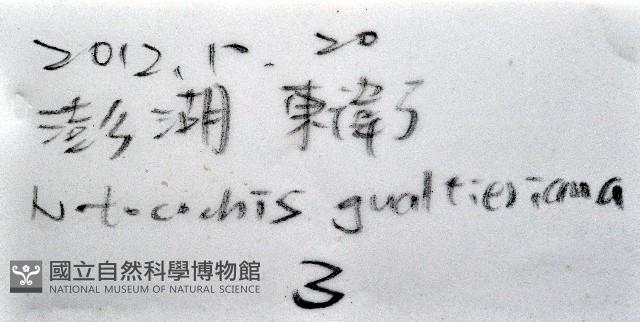 2012. 10. 20
澎湖 東衛
Notocochlis gualtieriana
國立自然科學博物館
NATIONAL MUSEUM OF NATURAL SCIENCE
3